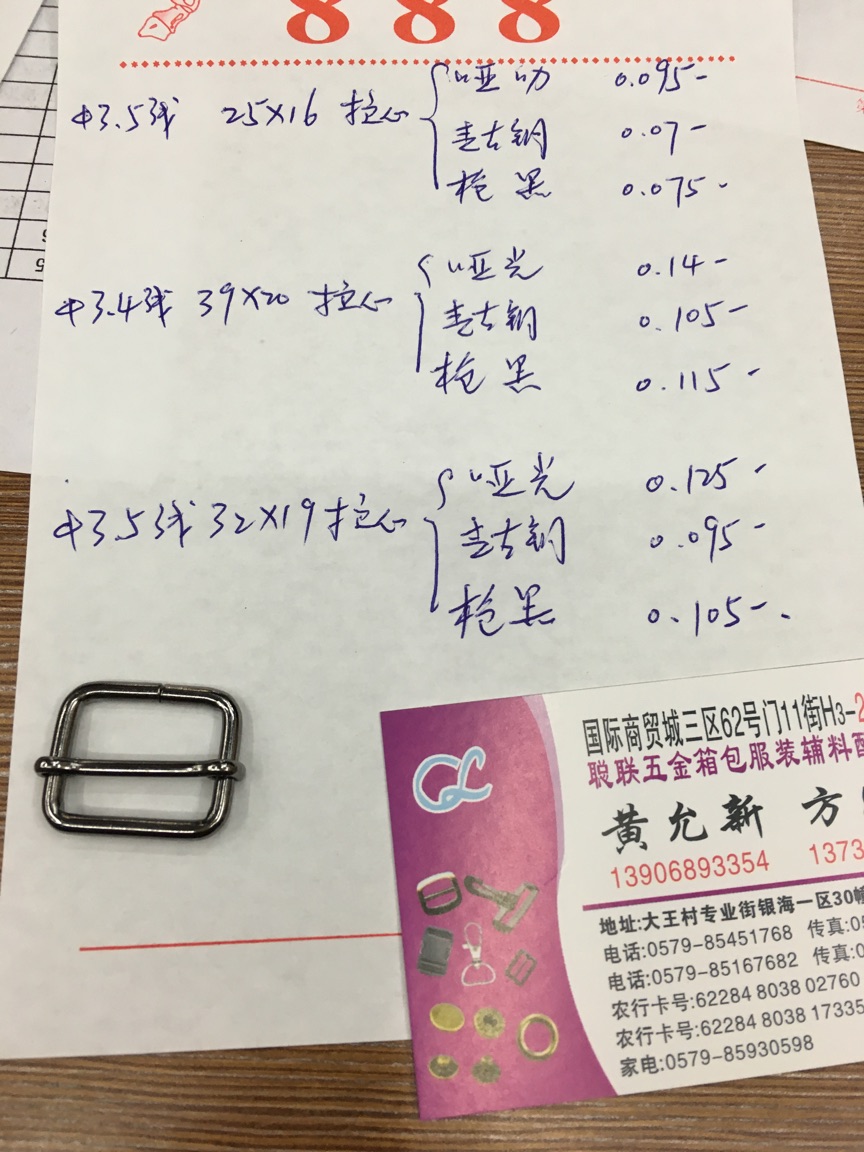 888
哑叻 0.095-
φ3.5线 25×16 拉心
青古铜 0.07-
枪黑 0.075-
哑光 0.14-
φ3.4线 39×20 拉心
青古铜 0.105-
枪黑 0.115-
哑光 0.125-
φ3.5线 32×19 拉心
青古铜 0.095-
枪黑 0.105-.
国际商贸城三区62号门11街H3-2
聪联五金箱包服装辅料配
黄允新 方
13906893354 1373
地址:大王村专业街银海一区30幢
电话:0579-85451768 传真:05
电话:0579-85167682 传真:0
农行卡号:62284 8038 02760
农行卡号:62284 8038 17335
家电:0579-85930598